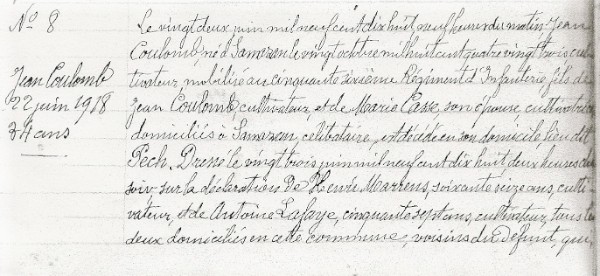 N° 8
Jean Coulomb
22 juin 1918
34 ans
Le vingt deux juin mil neuf cent dix huit, neuf heures du matin Jean
Coulomb né à Samazan le vingt octobre mil huit cent quatre vingt trois cul-
tivateur, mobilisé au cinquante sixième Régiment d'Infanterie, fils de
Jean Coulomb, cultivateur, et de Marie Casse, son épouse, cultivatrice
domiciliés à Samazan, célibataire, est décédé en son domicile, lieu dit
Pech. Dressé le vingt trois juin mil neuf cent dix huit deux heures du
soir sur la déclaration de Henri Marrens, soixante seize ans, culti-
vateur, et de Antoine Lafaye, cinquante sept ans, cultivateur, tous les
deux domiciliés en cette commune, voisins du défunt, qui,